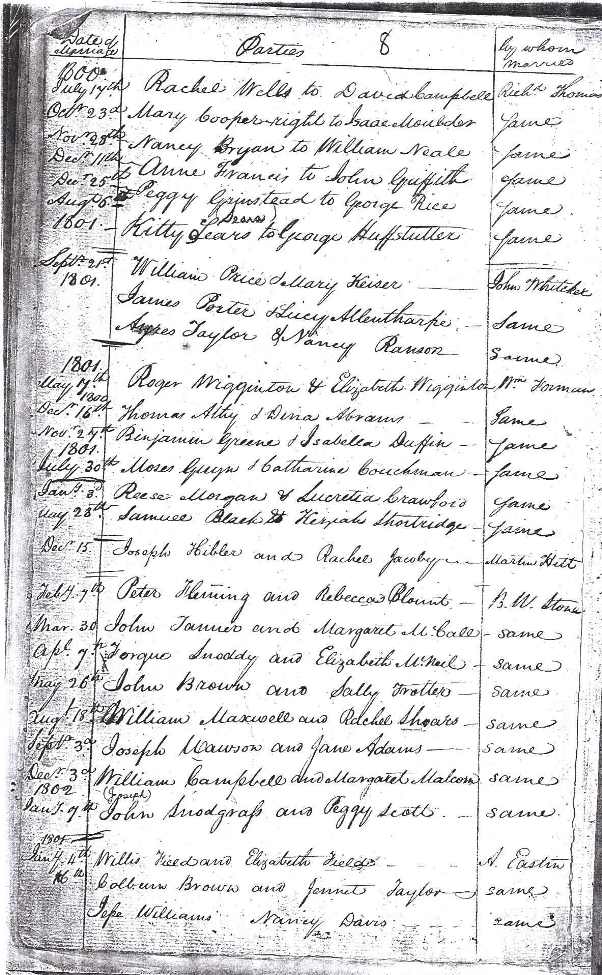 Date of Marriage Parties 8 by whom married
1800.
July 17th Rachel Wells to David Campbell Richd. Thomas
Octr. 23d Mary Cooper-right to Isaac Moulder Same
Novr. 28th Nancy Bryan to William Neale Same
Decr. 11th Anne Francis to John Griffith Same
Decr. 25th Peggy Grinstead to George Rice Same
Augt. 6th
1801. Kitty Sears (Sears) to George Huffstutter Same
Septr. 21st William Price & Mary Keiser John Whitaker
1801.
James Porter & Lucy Allenthorpe Same
Taylor & Nancy Ranson Same
1801.
May 7th Roger Wigginton & Elizabeth Wigginton Wm Forman
1800
Decr. 16th Thomas Athy & Dina Abrams Same
Novr. 27th Benjamin Greene & Isabella Duffin Same
1801.
July 30th Moses Guyn & Catharine Couchman Same
Jany. 8 Reese Morgan & Lucretia Crawford Same
May 28th Samuel Black & Keziah Shortridge Same
Decr. 15 Joseph Hibler and Rachel Jacoby Martin Hitt
Feby. 7th Peter Fleming and Rebecca Blount B. W. Stone
Mar. 30 John Tanner and Margaret McCall same
Apl. 7th Torque Snoddy and Elizabeth McNeil same
May 26th John Brown and Sally Trotter same
Augt. 18th William Maxwell and Rachel Shoars same
Septr. 3d Joseph Lawson and Jane Adams same
Decr. 3d William Campbell and Margaret Malcom same
1802 (Joseph)
Jany. 7th John Snodgrass and Peggy Scott same
1801
Jany. 4th Willis Field and Elizabeth Field A. Eastin
16th Colburn Brown and Jennet Taylor same
Jesse Williams Nancy Davis same